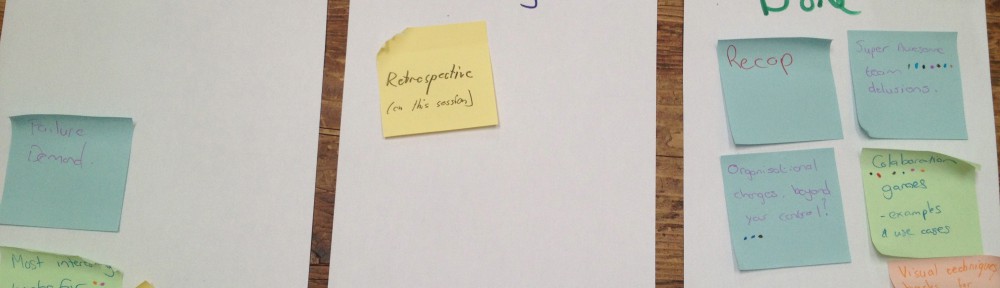 Failure
Demand.
Most
Retrospective
(on this session)
Done
Recap
Super Awesome
team
delusions.
Organisational
changes, beyond
your control!
Colaboration
games
- examples
& use cases
Visual techniques